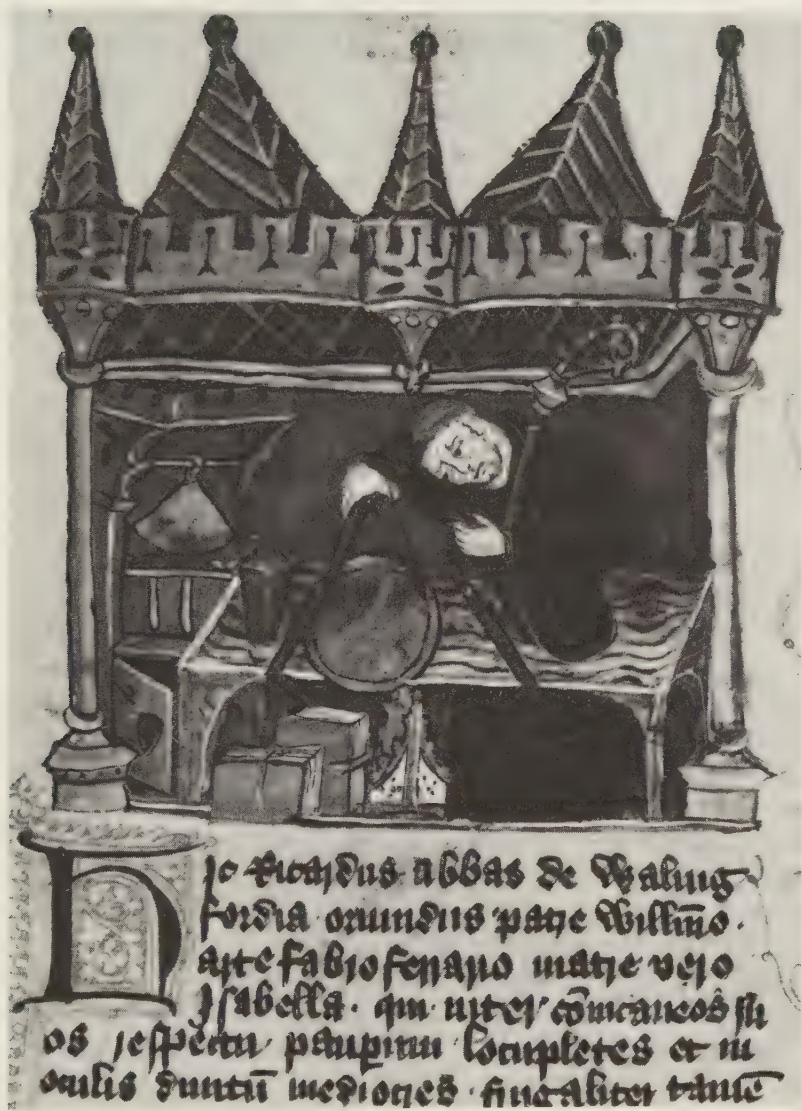 Hic Ricardus abbas de Waling
fordia oriundus patre Willm̄o.
arte fabro ferrario matre vero
Isabella. qui inter cōmcaneos su
os respectu paupērum locupletes et in
oculis diuitū mediocres. frugaliter tamē